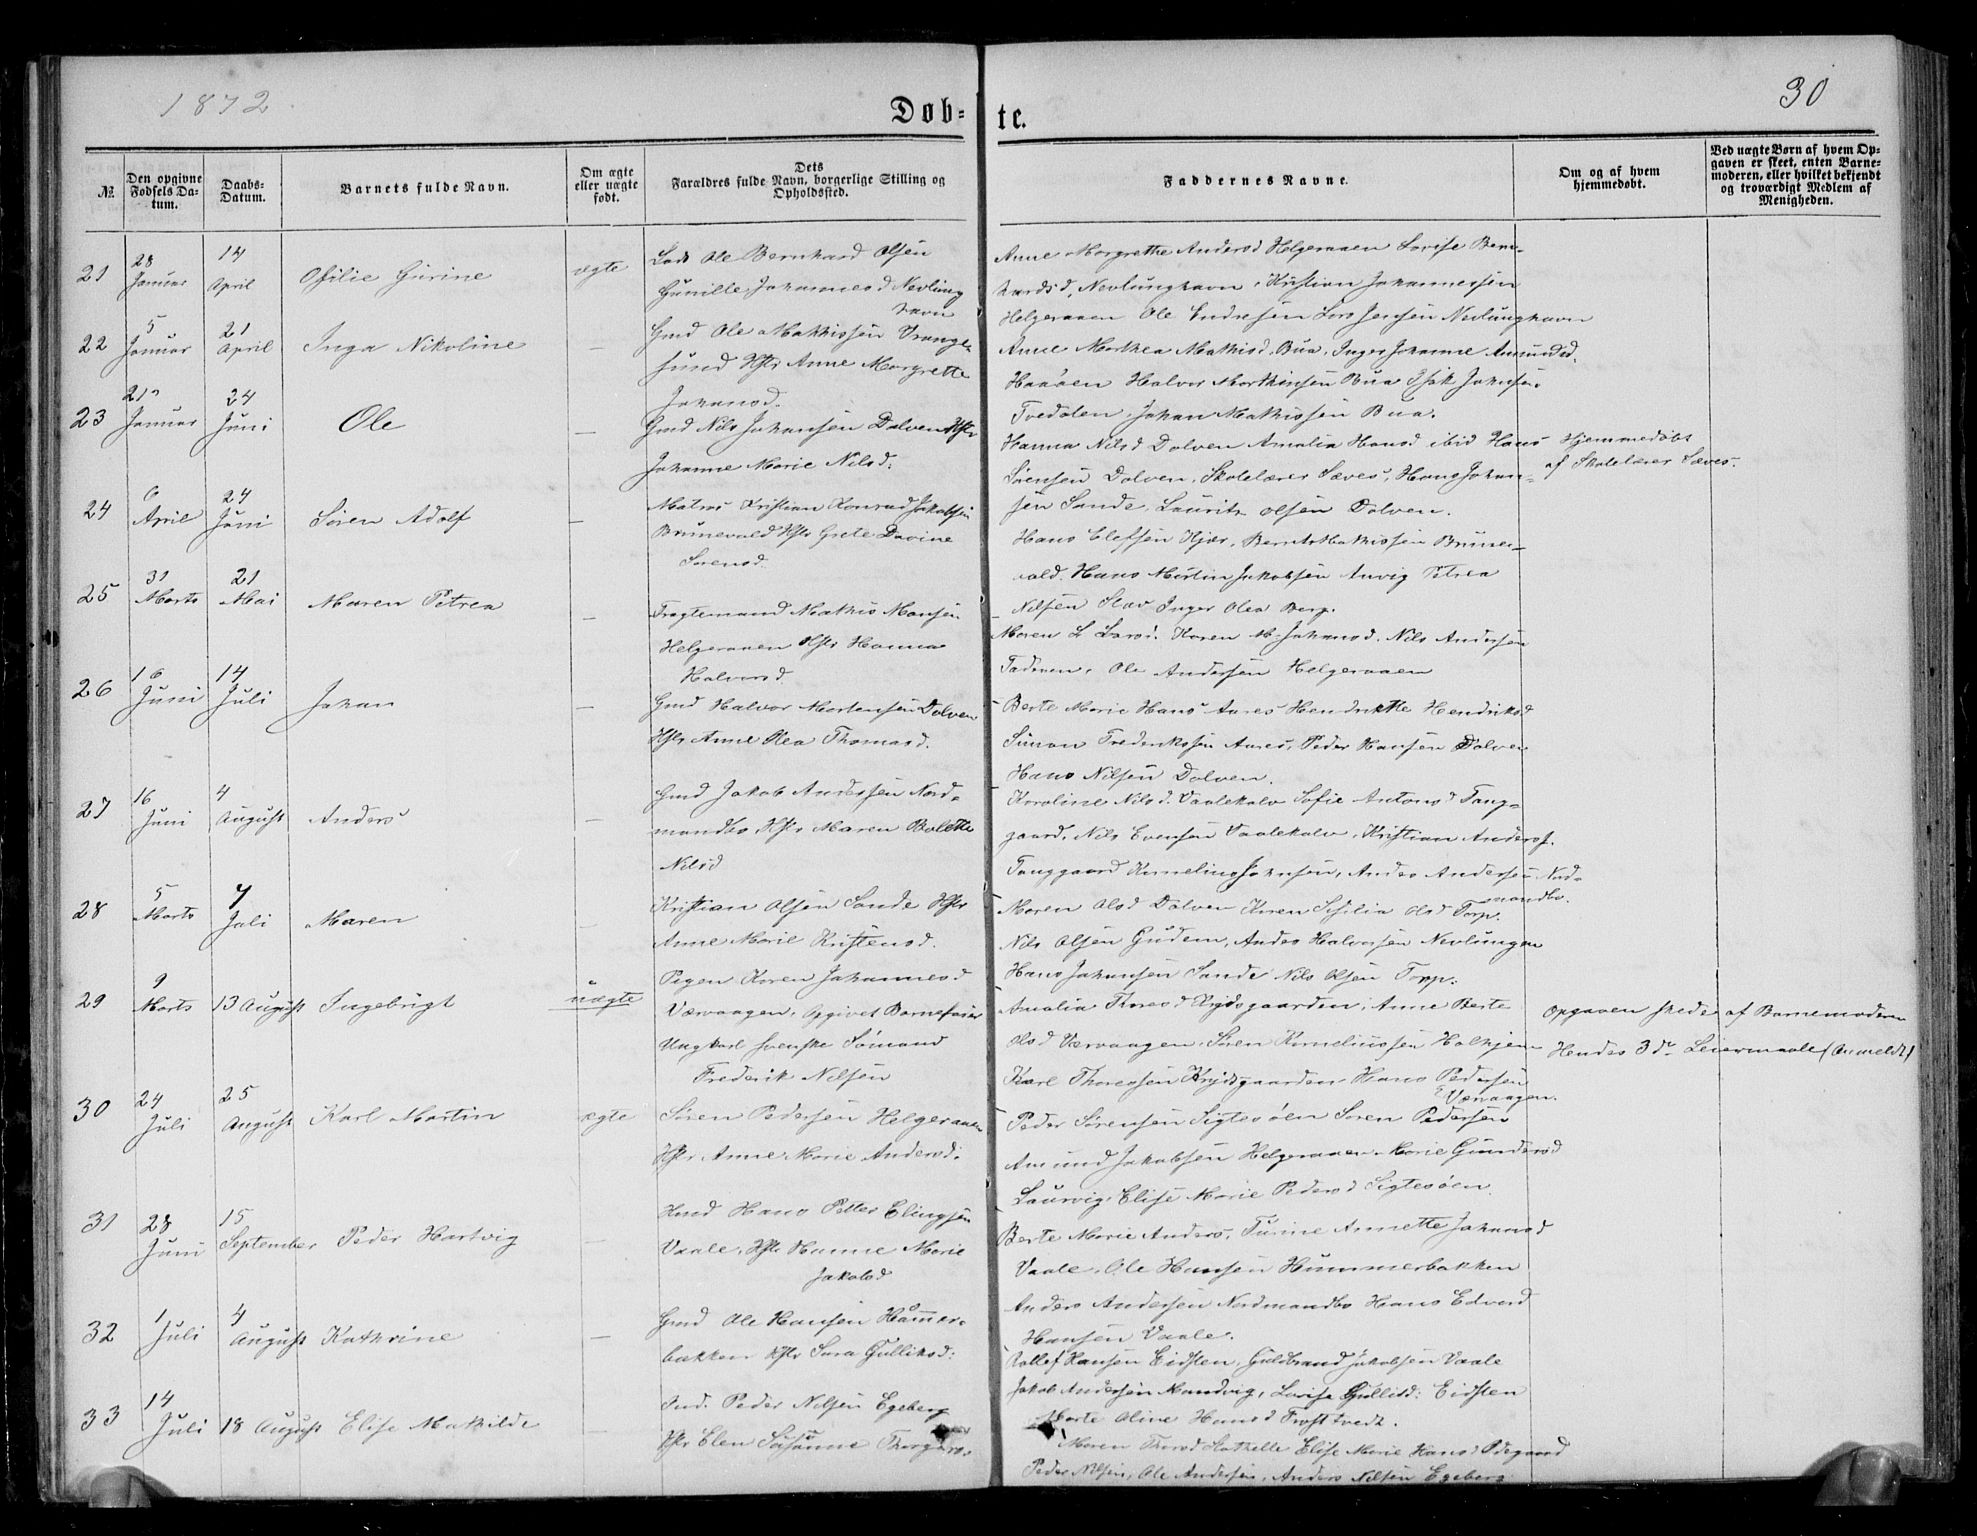 1872
Døb=
te.
30
№
Den opgivne Fødsels Da-tum.
Daabs-Datum.
Barnets fulde Navn.
Om ægte eller uægte født.
Dets Farældres fulde Navn, borgerlige Stilling og Opholdssted.
Faddernes Navne.
Om og af hvem hjemmedøbt.
Ved uægte Børn af hvem Op-gaven er skeet, enten Barne-moderen, eller hvilket bekjendt og troværdigt Medlem af Menigheden.
21
28 Januar
14 April
Ofilie Gurine
ægte
Lods Ole Bernhard Olsen
Gunille Johannesd Nevlung
havn
Anne Margrethe Andersd Helgeraaen Lovise Bern-
hardsd, Nevlunghavn, Kristian Johannessen
Helgeraaen Ole Endresen Lars Jensen Nevlunghavn
22
5 Januar
21 April
Inga Nikoline
—
Gmd Ole Mathissen Vrange-
sund Hstr Anne Margrette
Johansd.
Anne Marthea Mathisd. Bua, Inger Johanne Amundsd.
Haaøen Halvor Marthinsen Bua Isak Johnsen
Tvedalen, Johan Mathissen Bua.
23
21 Januar
24 Juni
Ole
—
Gmd Nils Johansen Dolven Hstr
Johanne Marie Nilsd.
Hanna Nilsd Dolven Amalia Hansd ibid Hans
Sørensen Dolven, Skolelærer Sæves, Hans Johan-
sen Sande, Laurits Olsen Dolven.
Hjemmedøbt
af Skolelærer Sæves.
24
6 April
24 Juni
Søren Adolf
—
Matros Kristian Konrad Jakobsen
Brunevald Hstr Grete Davine
Sørensd.
Hans Elefsen Hjær, Bernt Mathissen Brune-
vald. Hans Martin Jakobsen Anvig Petrea
Nilsen Slav Inger Olea Berg.
25
31 Marts
21 Mai
Maren Petrea
—
Fragtemand Mathis Hansen
Helgeraaen Hstr Hanna
Halvorsd.
Maren L Larsd. Karen M. Johansd. Nils Andersen
Ole Andersen Helgeraaen
26
16 Juni
14 Juli
Johan
—
Gmd Halvor Mortensen Dolven
Hstr Anne Olea Thomasd.
Berte Marie Hans Aares Hendrikke Hendriksd
Simon Frederiksen Aares, Peder Hansen Dolven
Hans Nilsen Dolven.
27
16 Juni
4 August
Anders
—
Gmd Jakob Andersen Nord-
mandbo Hstr Maren Bolette
Nilsd
Karoline Nilsd. Vaalekalv Sofie Antonsd Tang-
gaard, Nils Evensen Vaalekalv, Kristian Anders.
Tanggaard Kornelius Johnsen, Anders Andersen Nord-
mandbo.
28
5 Marts
7 Juli
Maren
—
Kristian Olsen Sande Hstr
Anne Marie Kristensd.
Maren Olsd Dolven Karen Sesilia Olsd Torp.
Nils Olsen Gudem, Anders Halvorsen Nevlungen
Hans Johansen Sande Nils Olsen Torp.
29
9 Marts
13 August
Ingebrigt
uægte
Pigen Karen Johannesd
Værvaagen, Opgivet Barnefader
Ungkarl svenske Sømand
Frederik Nilsen
Amalia Thoresd Krydsgaarden, Anne Berte
Olsd Værvaagen, Søren Korneliussen Holkjem
Karl Thoresen Krydsgaarden Hans Pedersen
Værvaagen.
Opgaven skede af Barnemoderen
Hendes 3die Leiermaal (Anmeldt)
30
24 Juli
25 August
Karl Martin
ægte
Søren Pedersen Helgeraaen
Hstr Anne Marie Andersd.
Peder Sørensen Sigtesøen Søren Pedersen
Amund Jakobsen Helgeraaen Marie Gundersd
Laurvig, Elise Marie Pedersd Sigtesøen
31
28 Juni
15 September
Peder Hartvig
—
Hmd Hans Petter Elingsen
Vaale, Hstr Hanne Marie
Jakobsd
Berte Marie Anders, Turine Annette Johansd
Vaale, Ole Hansen Hummerbakken
Anders Andersen Nordmandbo Hans Edvard
Hansen Vaale.
32
1 Juli
4 August
Kathrine
—
Gmd Ole Hansen Hammer-
bakken Hstr Sara Gulliksd.
Rollef Hansen Eidsten, Guldbrand Jakobsen Vaale
Jakob Andersen Mandvig, Lovise Gulliksd: Eidsten
Marte Oline Hansd Frostvedt.
33
14 Juli
18 August
Elise Mathilde
—
Ind. Peder Nilsen Egeberg
Hstr Elen Susanne
Maren Thorsd Stathelle Elise Marie Hansd Ødegaard
Peder Nilsen, Ole Andersen, Anders Nilsen Egeberg